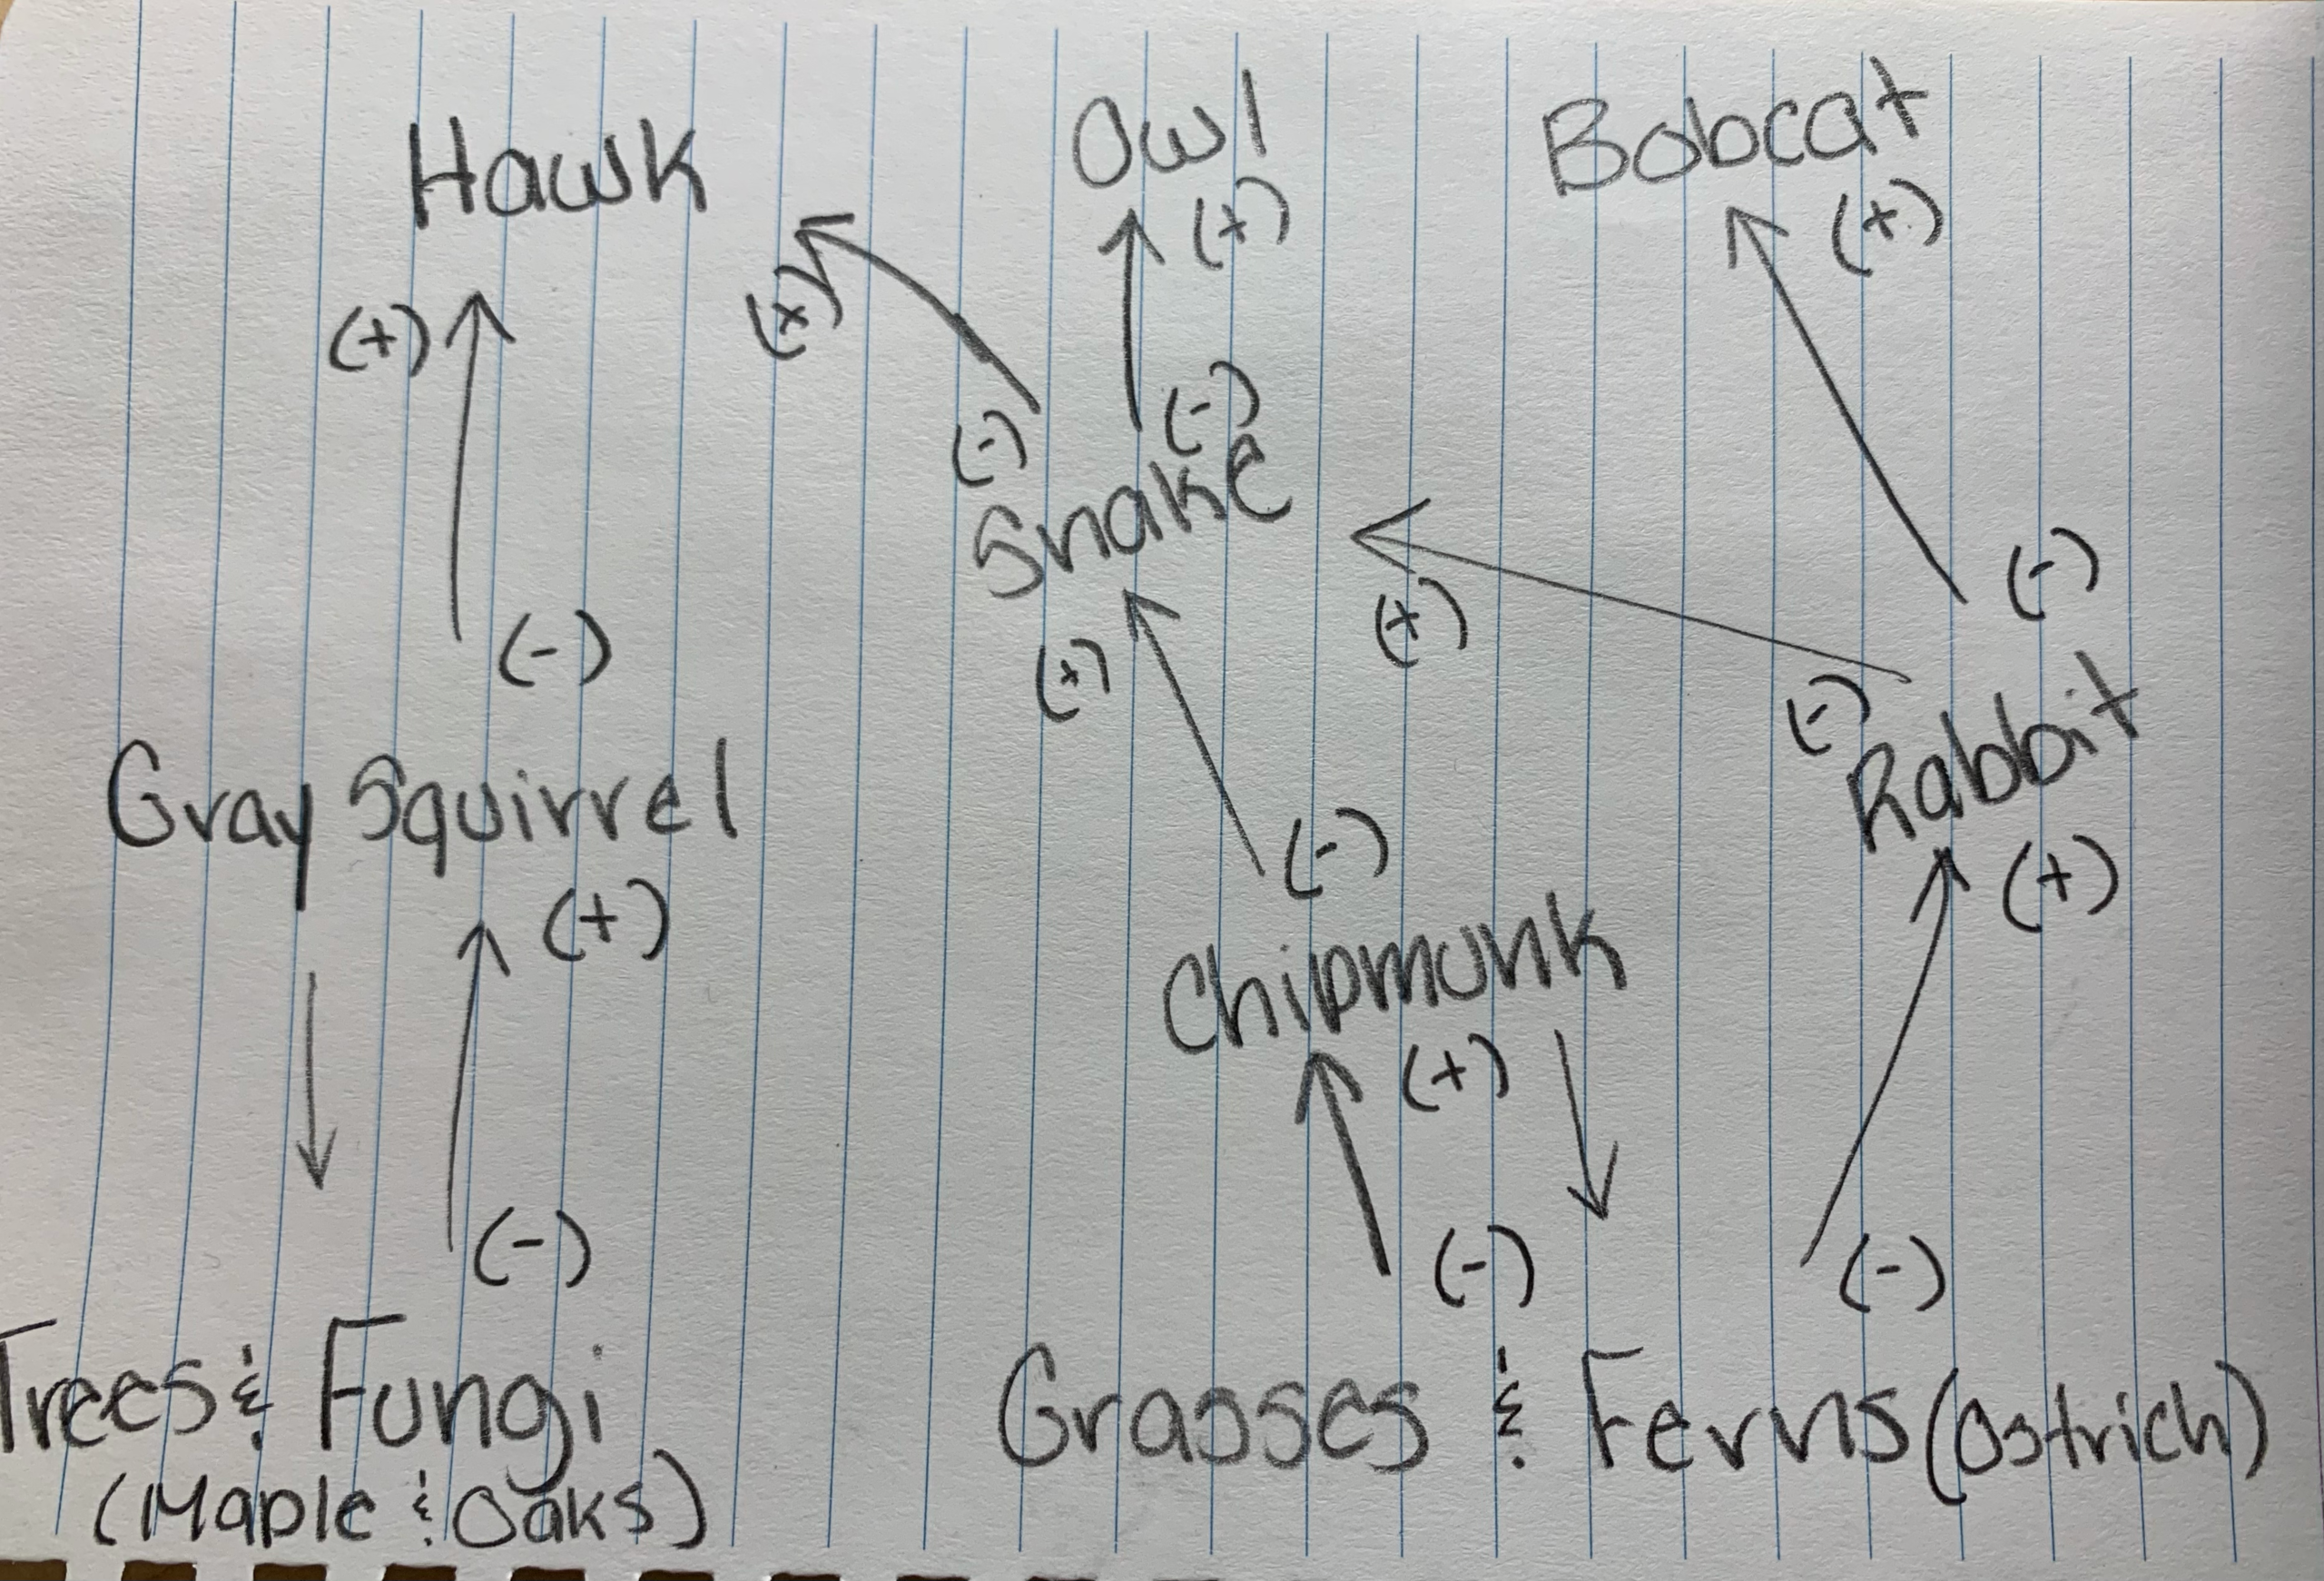 Hawk
Owl
Bobcat
(+)
(+)
(+)
(+)
(-)
(-)
Snake
(-)
(+)
(+)
(-)
(-)
Rabbit
Gray Squirrel
(-)
(+)
(+)
Chipmunk
(+)
(-)
(-)
(-)
Trees & Fungi
(Maple & Oaks)
Grasses & Ferns (Ostrich)